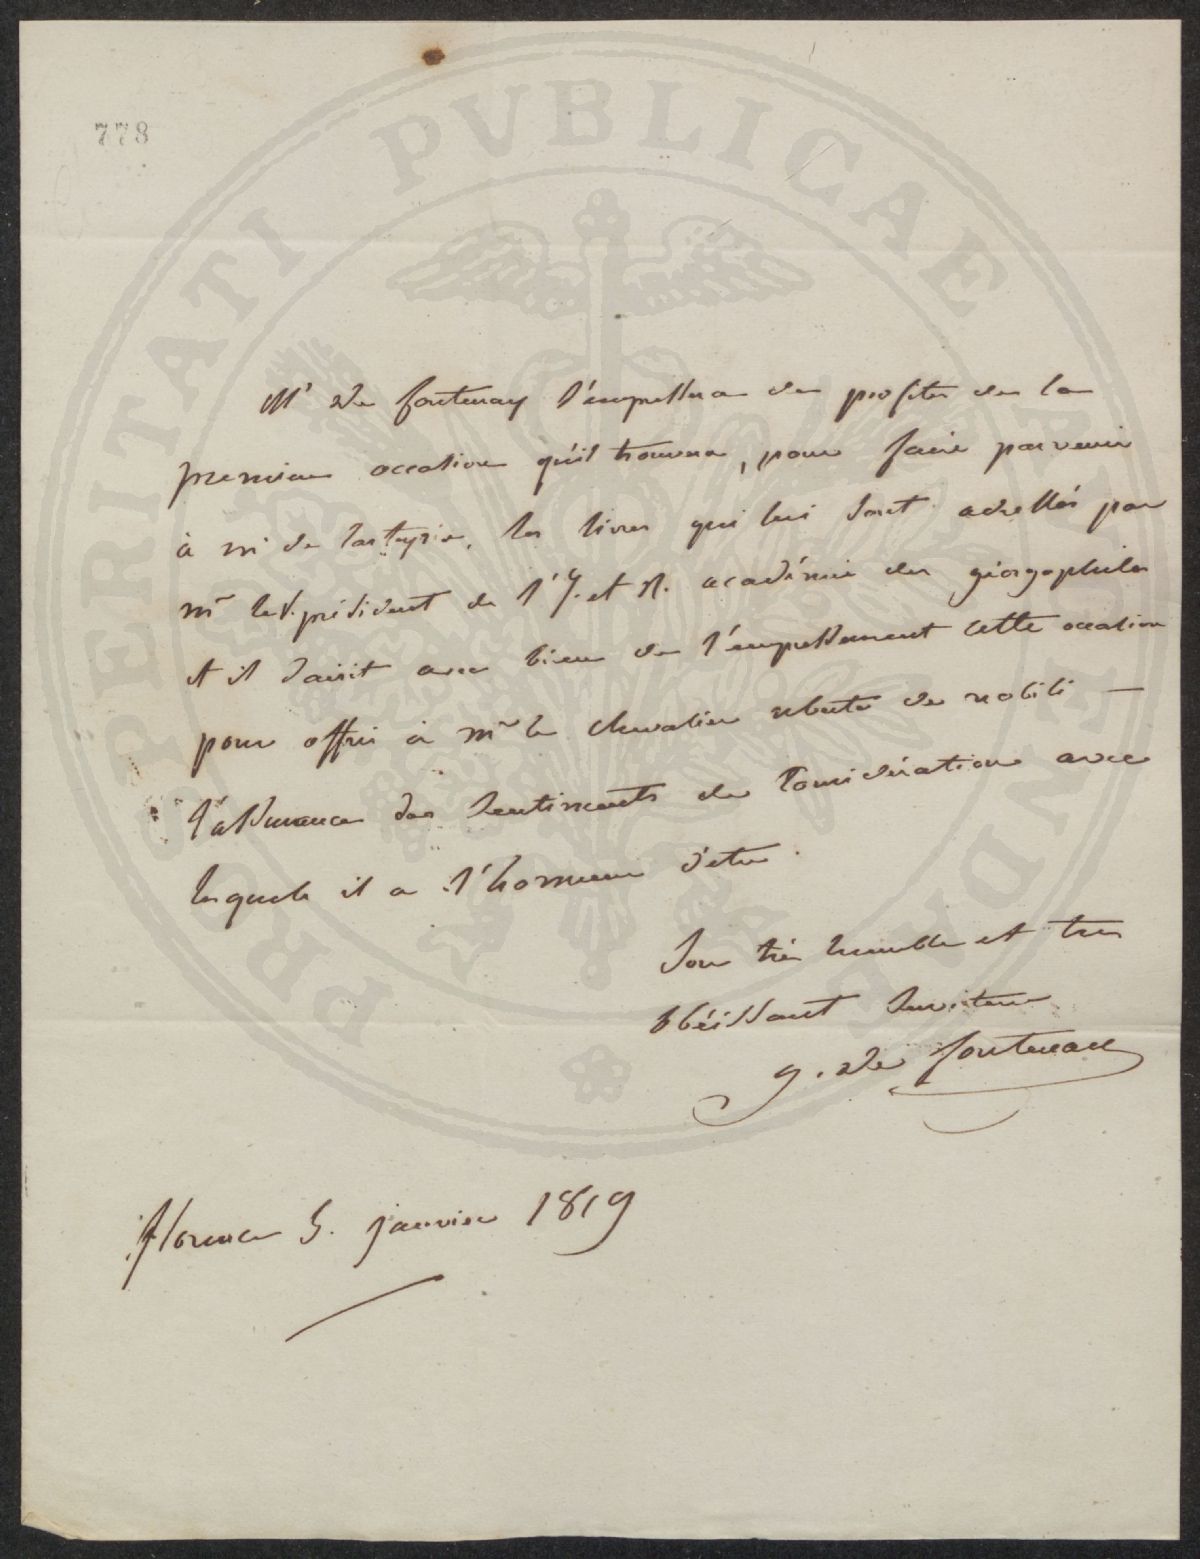 PROSPERITATI PVBLICAE AVGENDAE
778
Mr de fontenay s'empressera de profiter de la
premiere occasion qu'il trouvera, pour faire parvenir
à mr de lasteyrie, les livres qui lui sont adressés par
mr le V. président de l'I. et R. académie des géorgophiles
et il saisit avec bien de l'empressement cette occasion
pour offrir à mr le chevalier uberto de nobili —
l'assurance des sentiments de considération avec
lesquels il a l'honneur d'etre
Son très humble et tres
obéissant serviteur
g. de fontenay
florence 5. janvier 1819